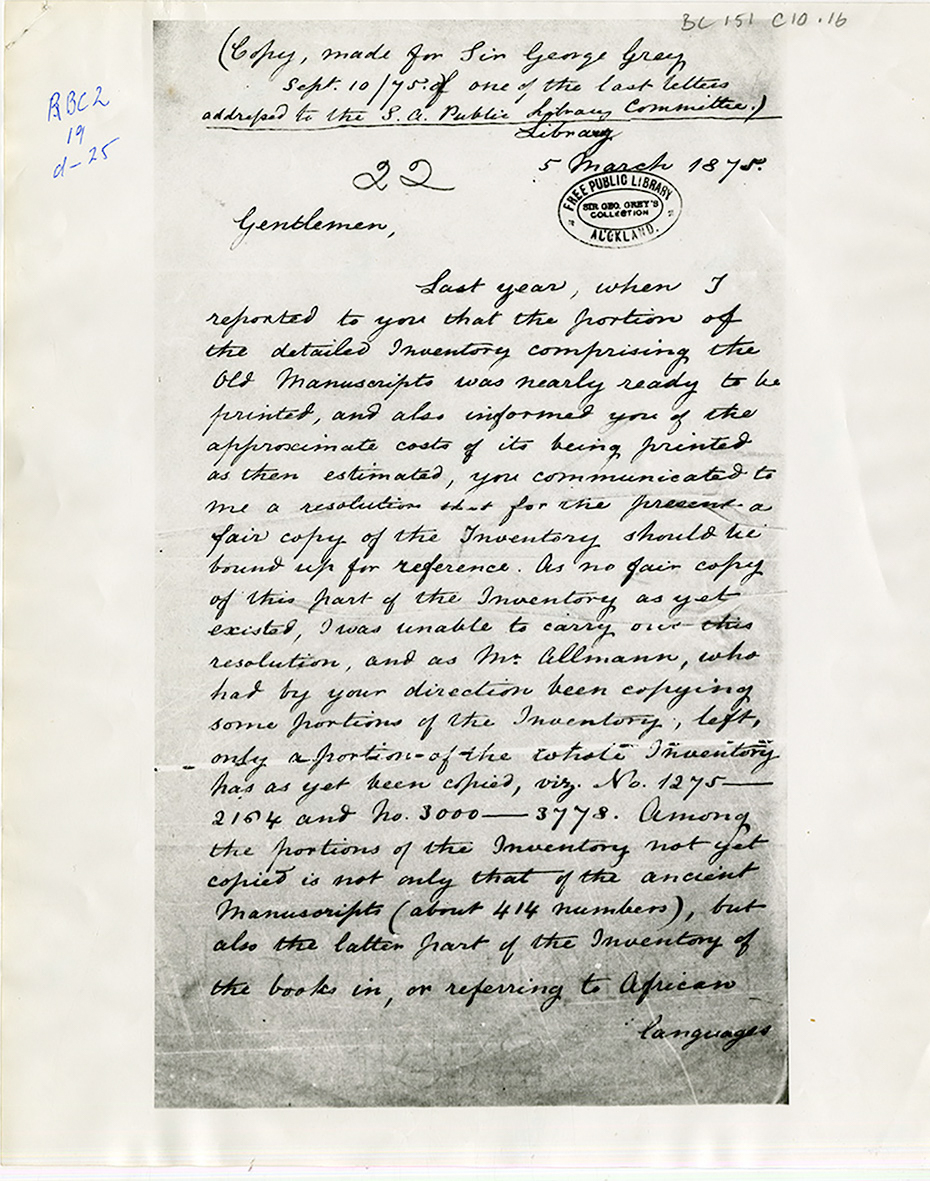 BC 151 C10.16
(Copy, made for Sir George Grey
Sept. 10/75. of one of the last letters
addressed to the S. A. Public Library Committee.)
Library
5 March 1875.
BBC2
19
d-25
22
FREE PUBLIC LIBRARY
SIR GEO. GREY'S
COLLECTION
AUCKLAND.
Gentlemen,
Last year, when I
reported to you that the portion of
the detailed Inventory comprising the
Old Manuscripts was nearly ready to be
printed, and also informed you of the
approximate costs of its being printed
as then estimated, you communicated to
me a resolution that for the present a
fair copy of the Inventory should be
bound up for reference. As no fair copy
of this part of the Inventory as yet
existed, I was unable to carry out this
resolution, and as Mr. Allmann, who
had by your direction been copying
some portions of the Inventory, left,
only a portion of the whole Inventory
has as yet been copied, viz. No. 1275—
2164 and No. 3000—3778. Among
the portions of the Inventory not yet
copied is not only that of the ancient
Manuscripts (about 414 numbers), but
also the latter part of the Inventory of
the books in, or referring to African
languages